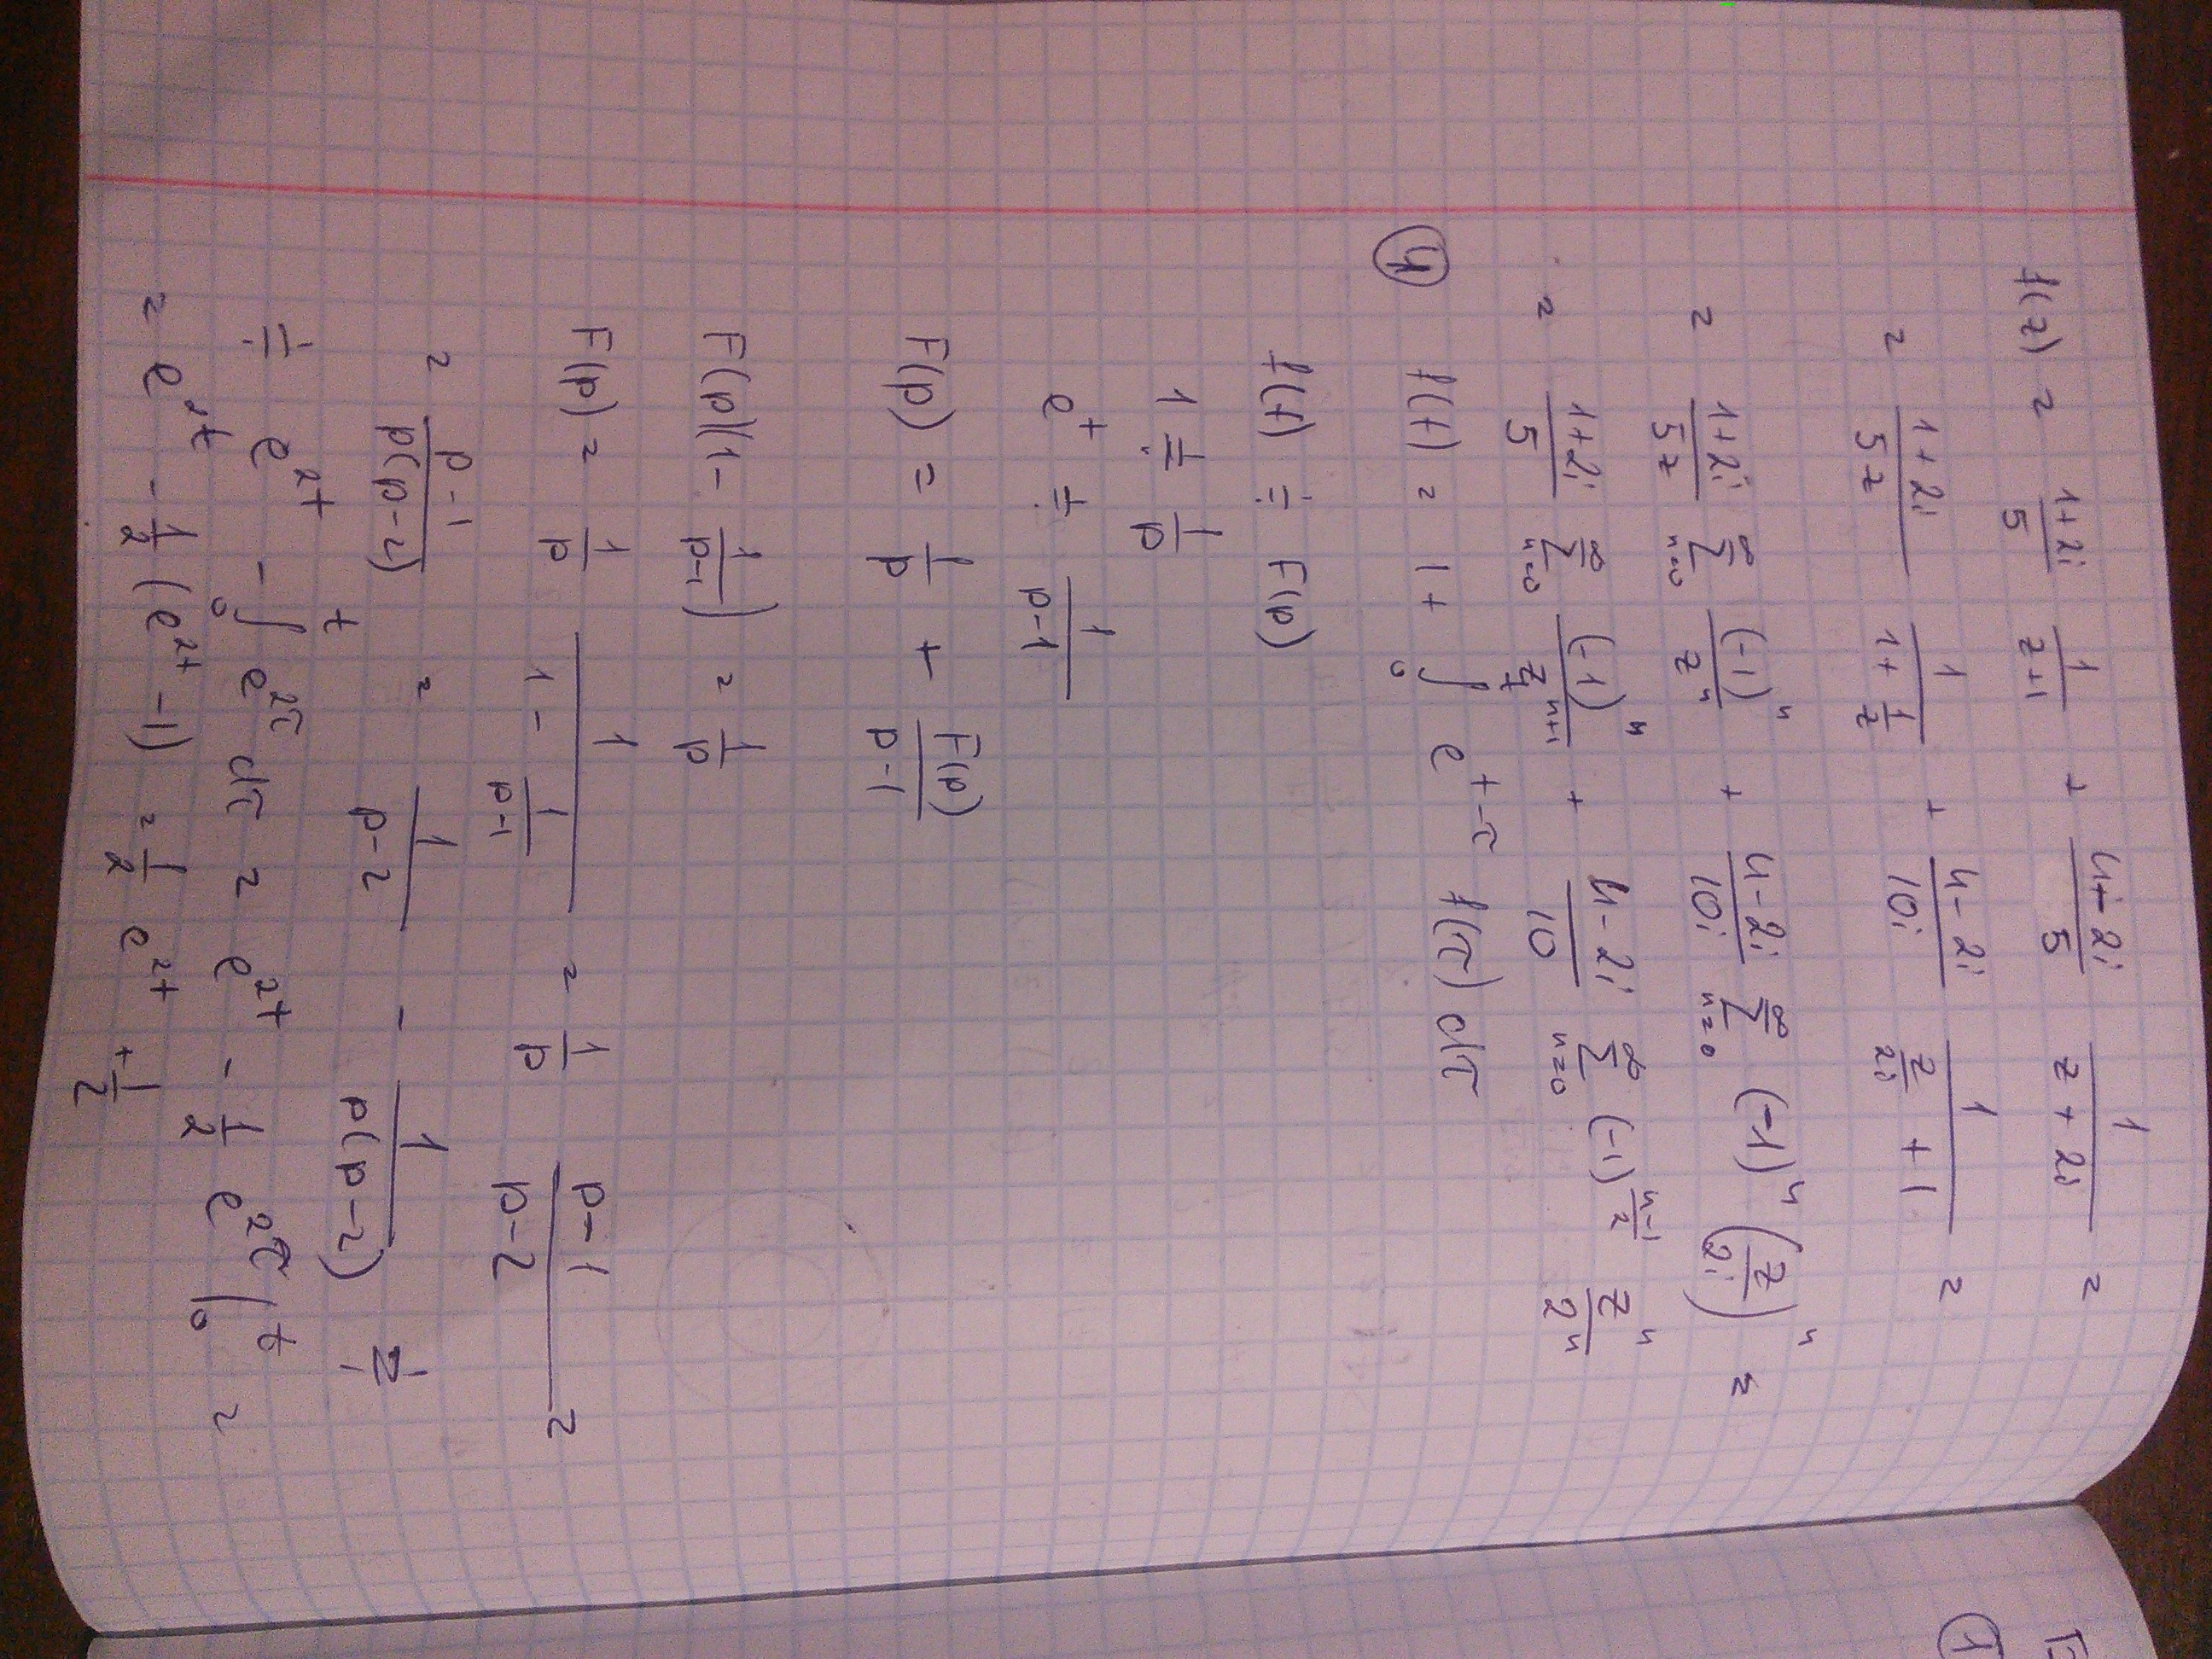 f(z) = \frac{1+2i}{5} \frac{1}{z+1} + \frac{4-2i}{5} \frac{1}{z+2i} =
= \frac{1+2i}{5z} \frac{1}{1+\frac{1}{z}} + \frac{4-2i}{10i} \frac{1}{\frac{z}{2i}+1} =
= \frac{1+2i}{5z} \sum_{n=0}^{\infty} \frac{(-1)^n}{z^n} + \frac{4-2i}{10i} \sum_{n=0}^{\infty} (-1)^n \left(\frac{z}{2i}\right)^n =
= \frac{1+2i}{5} \sum_{n=0}^{\infty} \frac{(-1)^n}{z^{n+1}} + \frac{4-2i}{10} \sum_{n=0}^{\infty} (-1)^{\frac{n-1}{2}} \frac{z^n}{2^n}
④ f(t) = 1 + \int_0^t e^{t-τ} f(τ) dτ
f(t) ≑ F(p)
1 ≑ \frac{1}{p}
e^t ≑ \frac{1}{p-1}
F(p) = \frac{1}{p} + \frac{F(p)}{p-1}
F(p)(1 - \frac{1}{p-1}) = \frac{1}{p}
F(p) = \frac{1}{p} \frac{1}{1-\frac{1}{p-1}} = \frac{1}{p} \frac{p-1}{p-2} =
= \frac{p-1}{p(p-2)} = \frac{1}{p-2} - \frac{1}{p(p-2)} ≑
≑ e^{2t} - \int_0^t e^{2τ} dτ = e^{2t} - \frac{1}{2} e^{2τ} |_0^t =
= e^{2t} - \frac{1}{2} (e^{2t} - 1) = \frac{1}{2} e^{2t} + \frac{1}{2}
①